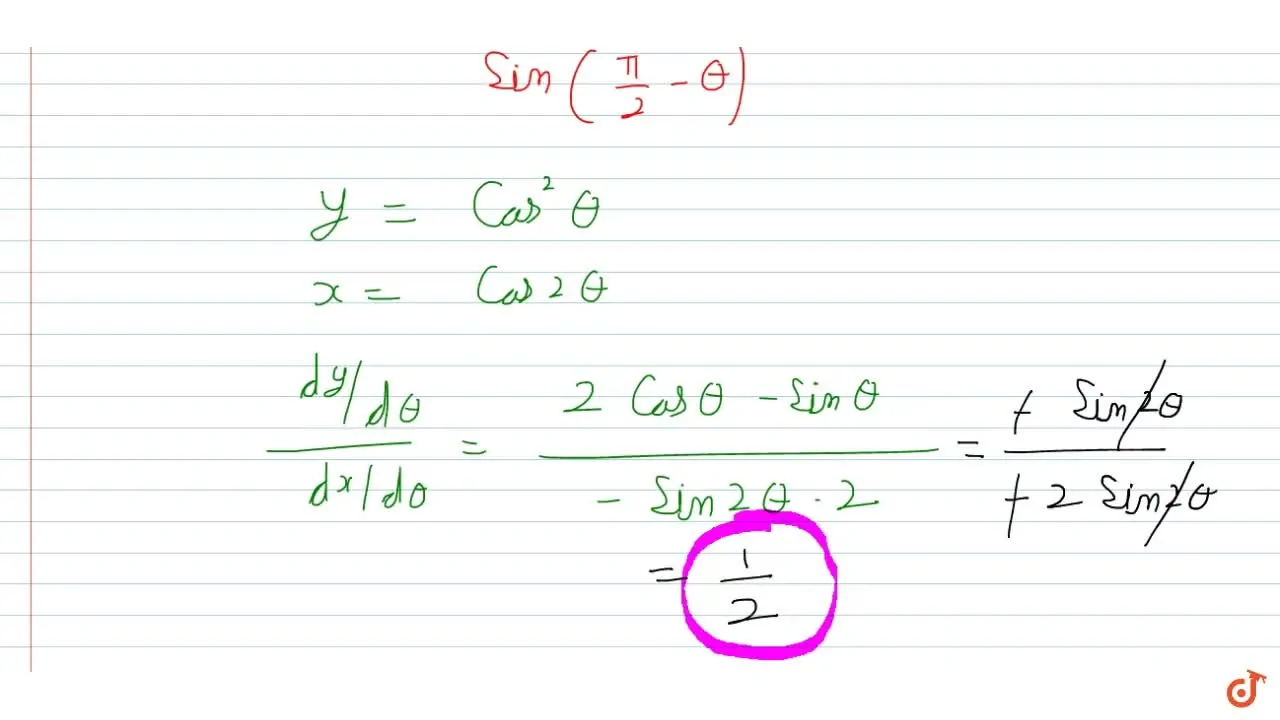 Sin (π/2 - θ)
y = Cos² θ
x = Cos 2θ
dy/dθ / dx/dθ = 2 Cosθ - Sinθ / - Sin2θ · 2 = + Sin2θ / + 2 Sin2θ
= 1/2